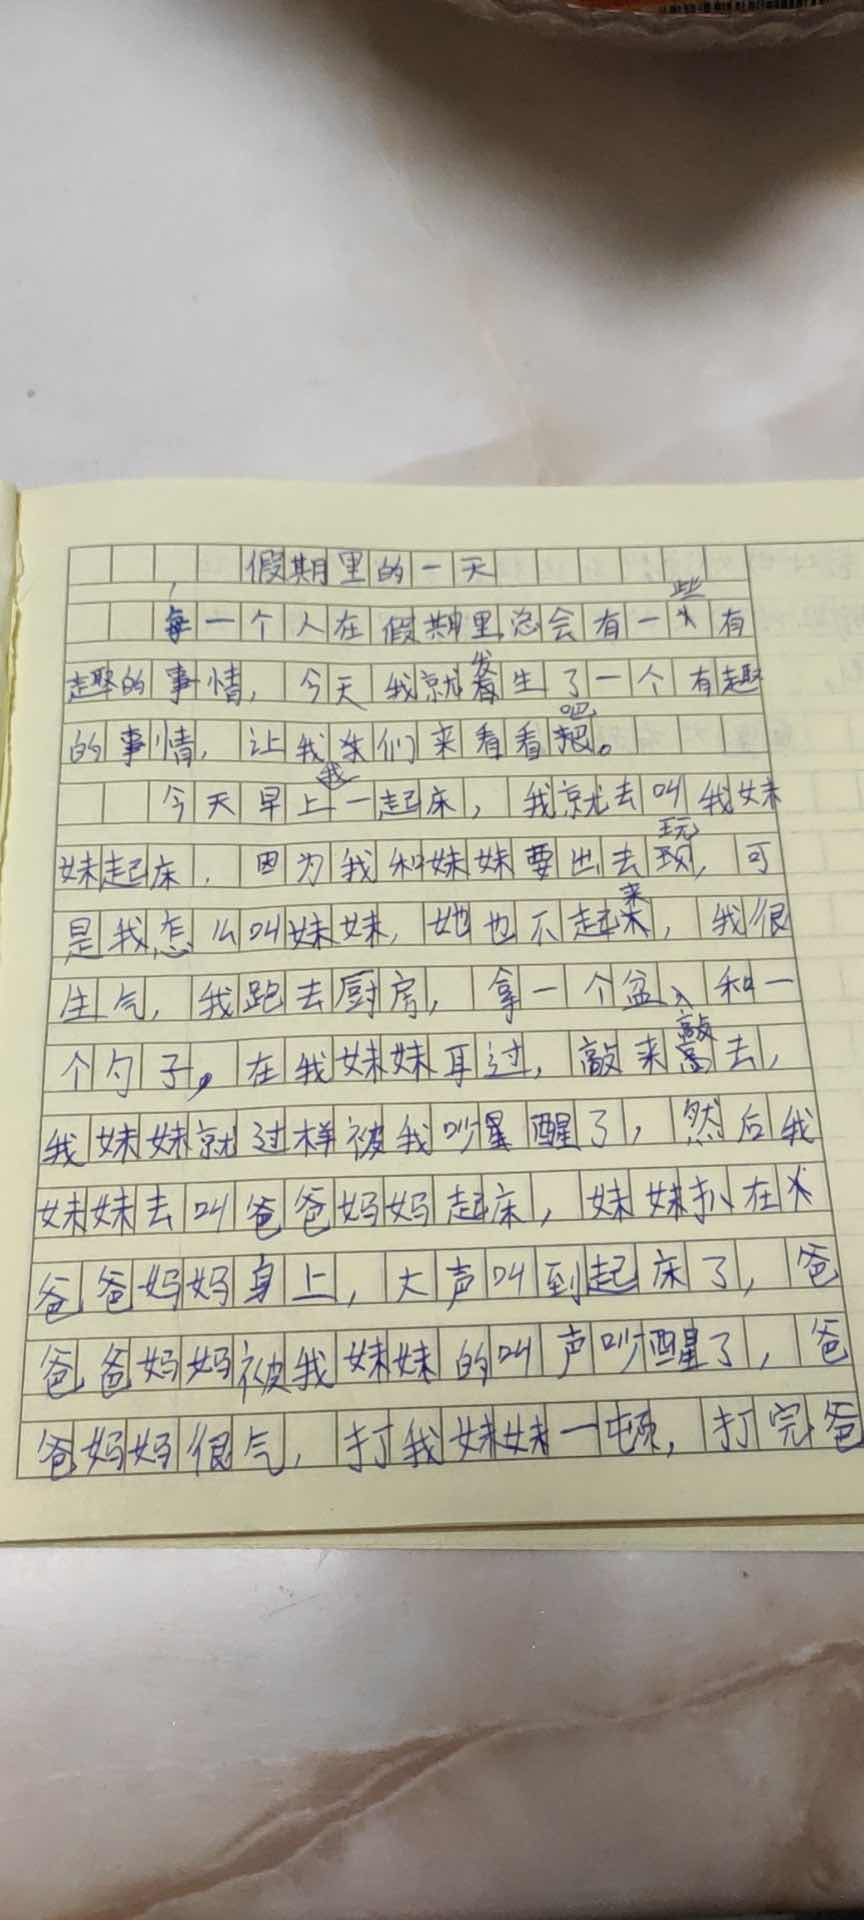 假期里的一天
每一个人在假期里总会有一些有
趣的事情，今天我就发生了一个有趣
的事情，让我们来看看吧。
今天早上我一起床，我就去叫我妹
妹起床，因为我和妹妹要出去玩，可
是我怎么叫妹妹，她也不起来，我很
生气，我跑去厨房，拿一个盆、和一
个勺子，在我妹妹耳过，敲来敲去，
我妹妹就过样被我吵醒了，然后我
妹妹去叫爸爸妈妈起床，妹妹扒在
爸爸妈妈身上，大声叫到起床了，爸
爸爸妈妈被我妹妹的叫声吵醒了，爸
爸妈妈很气，打我妹妹一顿，打完爸